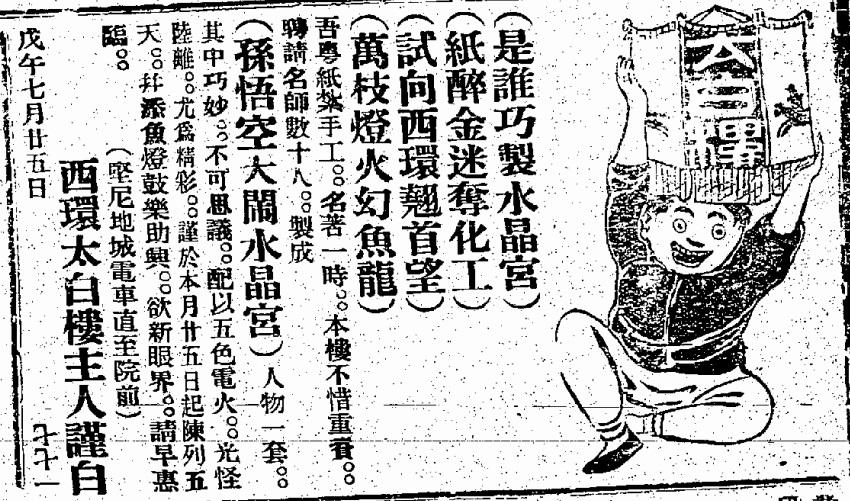 太白樓
(是誰巧製水晶宮)
(紙醉金迷奪化工)
(試向西環翹首望)
(萬枝燈火幻魚龍)
吾粵紙紮手工。。名著一時。。本樓不惜重資。。
聘請名師數十人。。製成
(孫悟空大鬧水晶宮)人物一套。。
其中巧妙。。不可思議。。配以五色電火。。光怪
陸離。。尤爲精彩。。謹於本月廿五日起陳列五
天。。幷添魚燈鼓樂助興。。欲新眼界。。請早惠
臨。。
(堅尼地城電車直至院前)
西環太白樓主人謹白
戊午七月廿五日